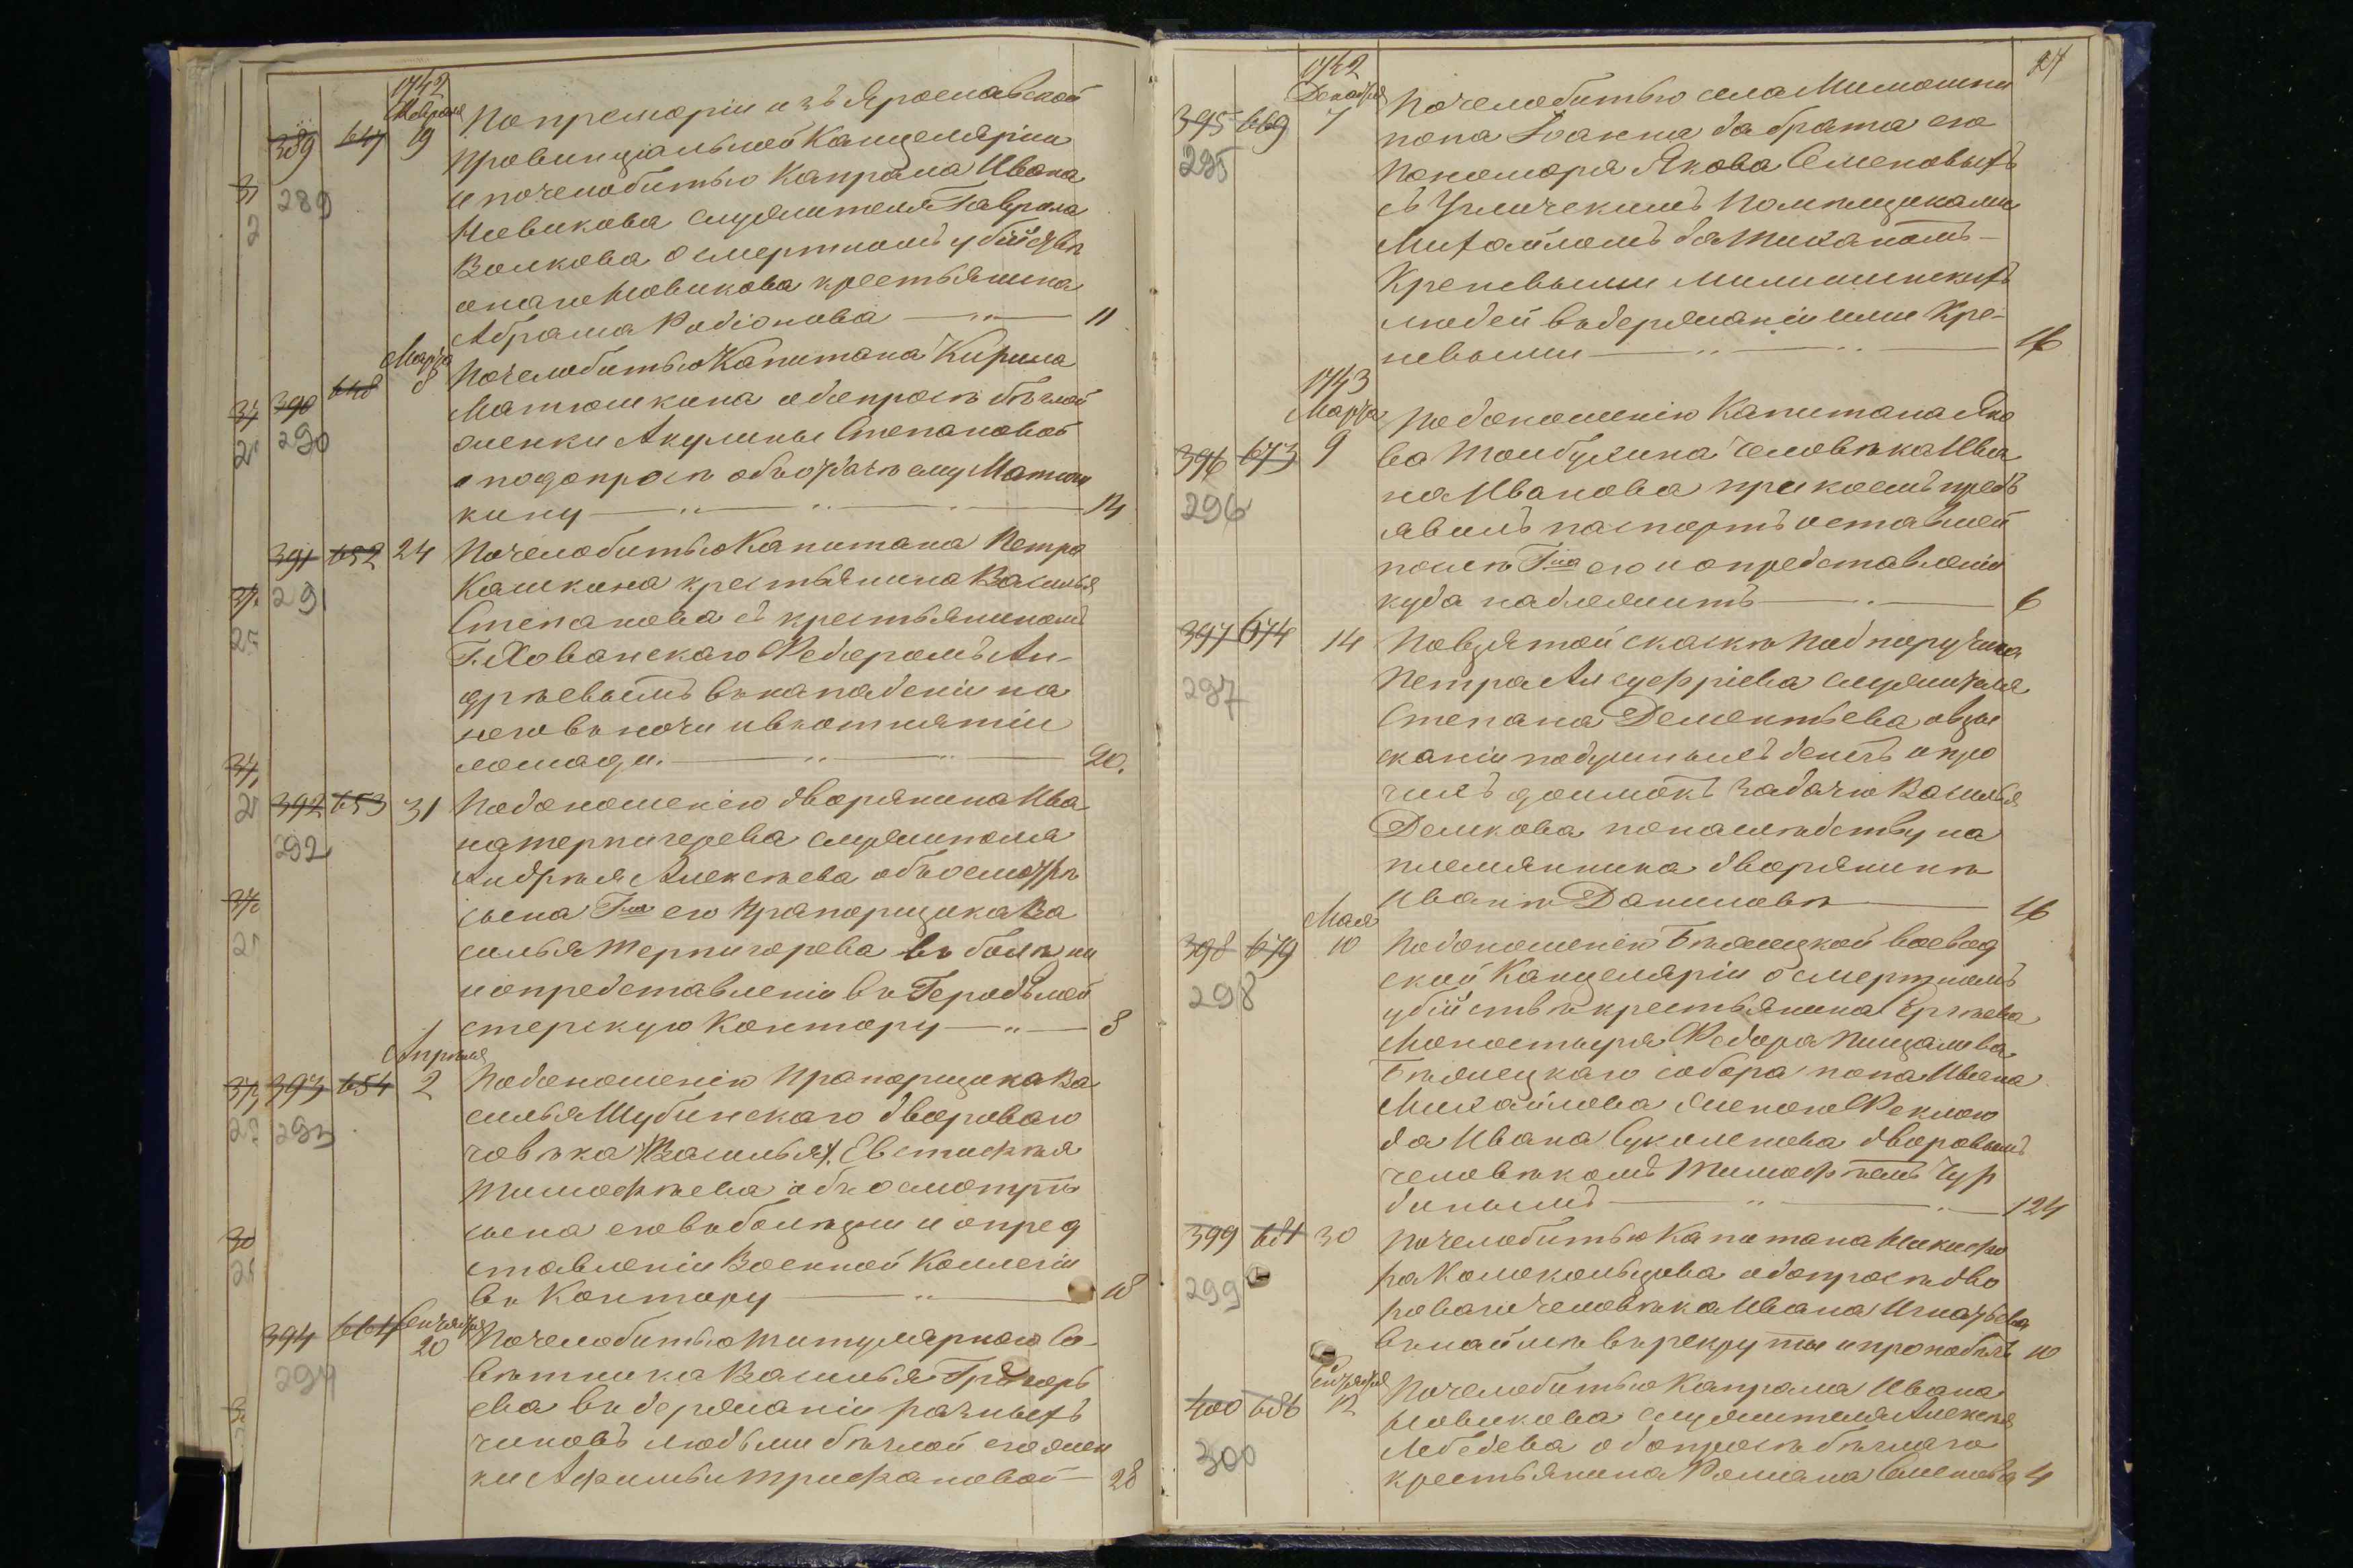 1742
Февраля
389 647 19 Попромеморіи изъ Ярославской
289
провинціальной Канцеляріи
ипочелобитью Капрала Ивана
Новикова служителя Гаврила
Волкова осмертномъ убійствѣ
онагоНовикова крестьянина
Абрама Родіонова 11
Марта
390 648 8 Почелобитью Капитана Кирила
290
Матюшкина одопросѣ бѣглой
женки Акулины Степановой
иподопросѣ объотдачѣ ему Матюш
кину 14
391 652 24 Почелобитью Капитана Петра
291
Кашкина крестьянина Василья
Степанова съ крестьяниномъ
Г. Хованскаго Ѳедоромъ Ан-
дрѣевымъ внападеніи на
него вночи ивотнятіи
лошади. 20.
392 653 31 Подоношенію дворянина Ива
292
на Терпигорева служителя
Андрѣя Алексѣева объосмотрѣ
сына Гна его Прапорщика Ва
силья Терпигорева въ болѣзни
иопредставленіи вГерольдмей
стерскую Контору 8
Апрѣля
393 654 2 Подоношенію Прапорщика Ва
293
силья Шубинскаго двороваго
человѣка Василья Евстифѣя
Тимофѣева объосмотрѣ
сына его вболѣзни иопред
ставленіи Военной Коллегіи
въ Контору 18
Сентября
394 664 20 Почелобитью Титулярнаго Со-
294
вѣтника Василья Григорь
ева вдержаніи разныхъ
чиновъ людьми бѣглой его жен
ки Афимьи Трифановой 28
27
1742
Декабря
395 669 7 Почелобитью села Милюшки
295
попа Іоанна да брата его
пономаря Якова Семеновыхъ
съ Угличскимъ Помѣщиками
Михайломъ да
Креневыми
людей вдержаніи ими Кре-
невыми 16
1743
Марта
396 673 9 Подоношенію Капитана Яко
296
ва Толбузина человѣка Ива
на Иванова при коемъ предъ
явилъ паспортъ оставшей
послѣ Гна его и опредставленіи
куда надлежитъ 6
397 674 14 Повзятой сказкѣ Подпоручика
297
Петра служителя
Степана Дементьева овзы
сканіи подушныхъ денегъ и про
чихъ доимокъ задачю Василья
Дешкова понаслѣдству на
племянника дворянинѣ
Иванѣ Даниловѣ 16
Мая
398 679 10 Подоношенію Бѣжецкой воевод
298
ской Канцеляріи осмертномъ
убійствѣ крестьянина
Монастыря Ѳедора Пищалева
Бѣжецкаго собора попа Ивана
Михайлова женою Ѳеклою
да Ивана дворовымъ
человѣкомъ Тимофѣемъ Чур
бинымъ 124
399 681 30 Почелобитью Капитана Никифо
299
ра Колокольцова одопросѣ дво
роваго человѣка Ивана Игнатьева
внаймѣ врекруты ипропобѣгъ 10
Сентября
400 686 12 Почелобитью Капрала Ивана
300
Новикова служителя Алексѣя
Лебедева одопросѣ бѣглаго
крестьянина Романа Семенова 4